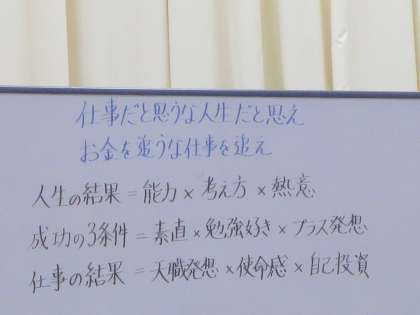 仕事だと思うな人生だと思え
お金を追うな仕事を追え
人生の結果=能力×考え方×熱意
成功の3条件=素直×勉強好き×プラス発想
仕事の結果=天職発想×使命感×自己投資